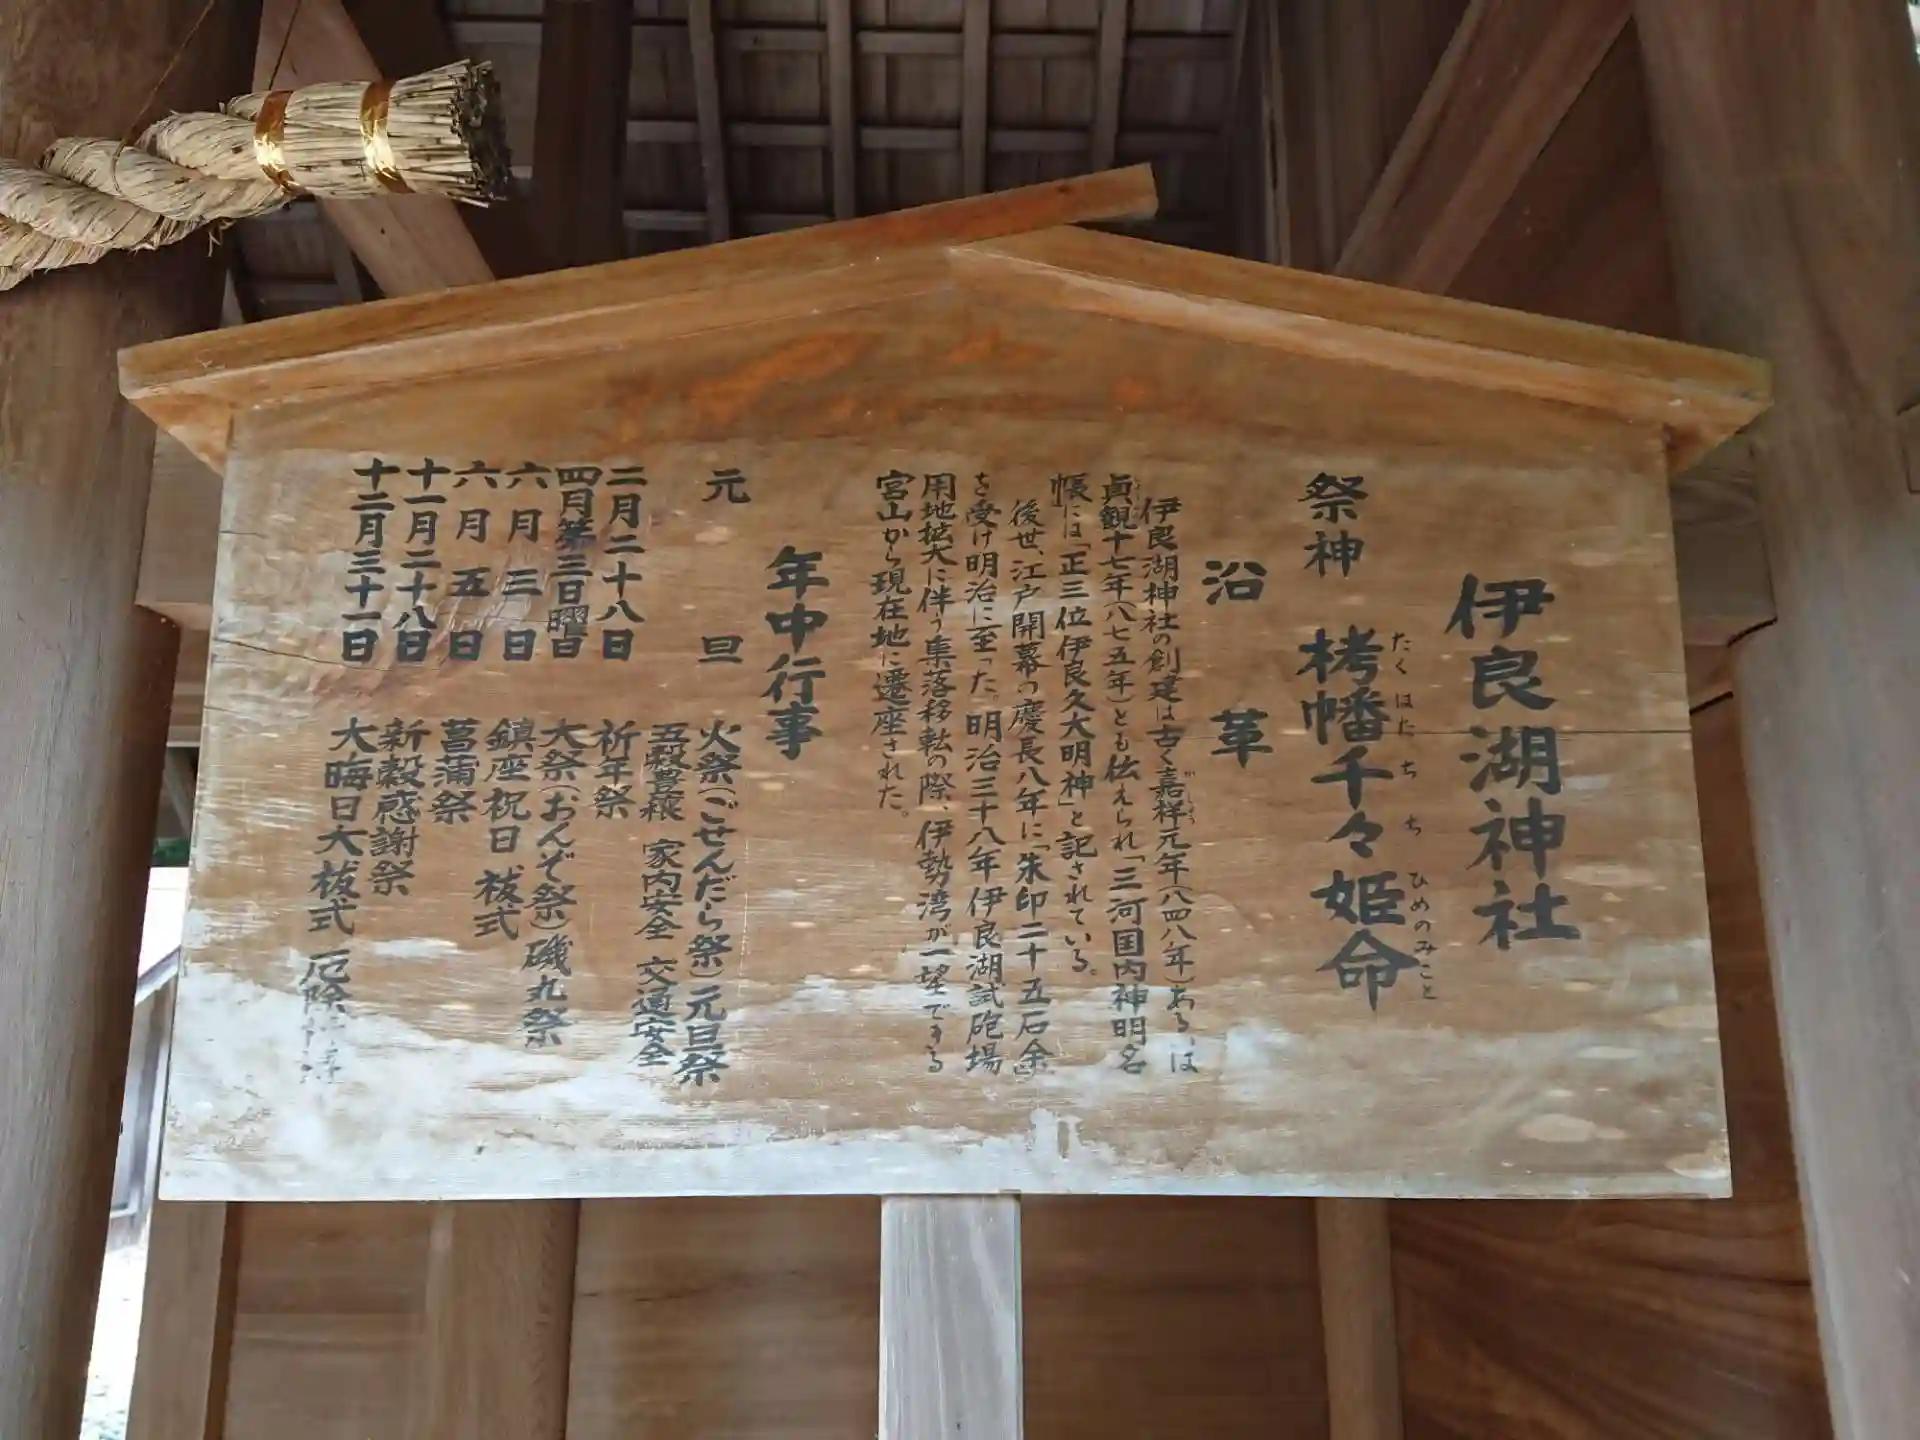 伊良湖神社
祭神 栲幡千々姫命
たくはた ち ぢ ひめのみこと
沿革
伊良湖神社の創建は古く嘉祥元年(八四八年)あるいは
がしょう
貞観十七年(八七五年)とも伝えられ「三河国内神明名
帳」には「正三位伊良久大明神」と記されている。
後世、江戸開幕の慶長八年に「朱印二十五石余」
を受け明治に至った。明治三十八年伊良湖試砲場
用地拡大に伴う集落移転の際、伊勢湾が一望できる
宮山から現在地に遷座された。
年中行事
元旦 火祭(ごせんだら祭)元旦祭
五穀豊穣 家内安全 交通安全
二月二十八日 祈年祭
四月第三日曜日 大祭(おんぞ祭)磯丸祭
六月三日 鎮座祝日 祓式
六月五日 菖蒲祭
十一月二十八日 新穀感謝祭
十二月三十一日 大晦日大祓式 厄除